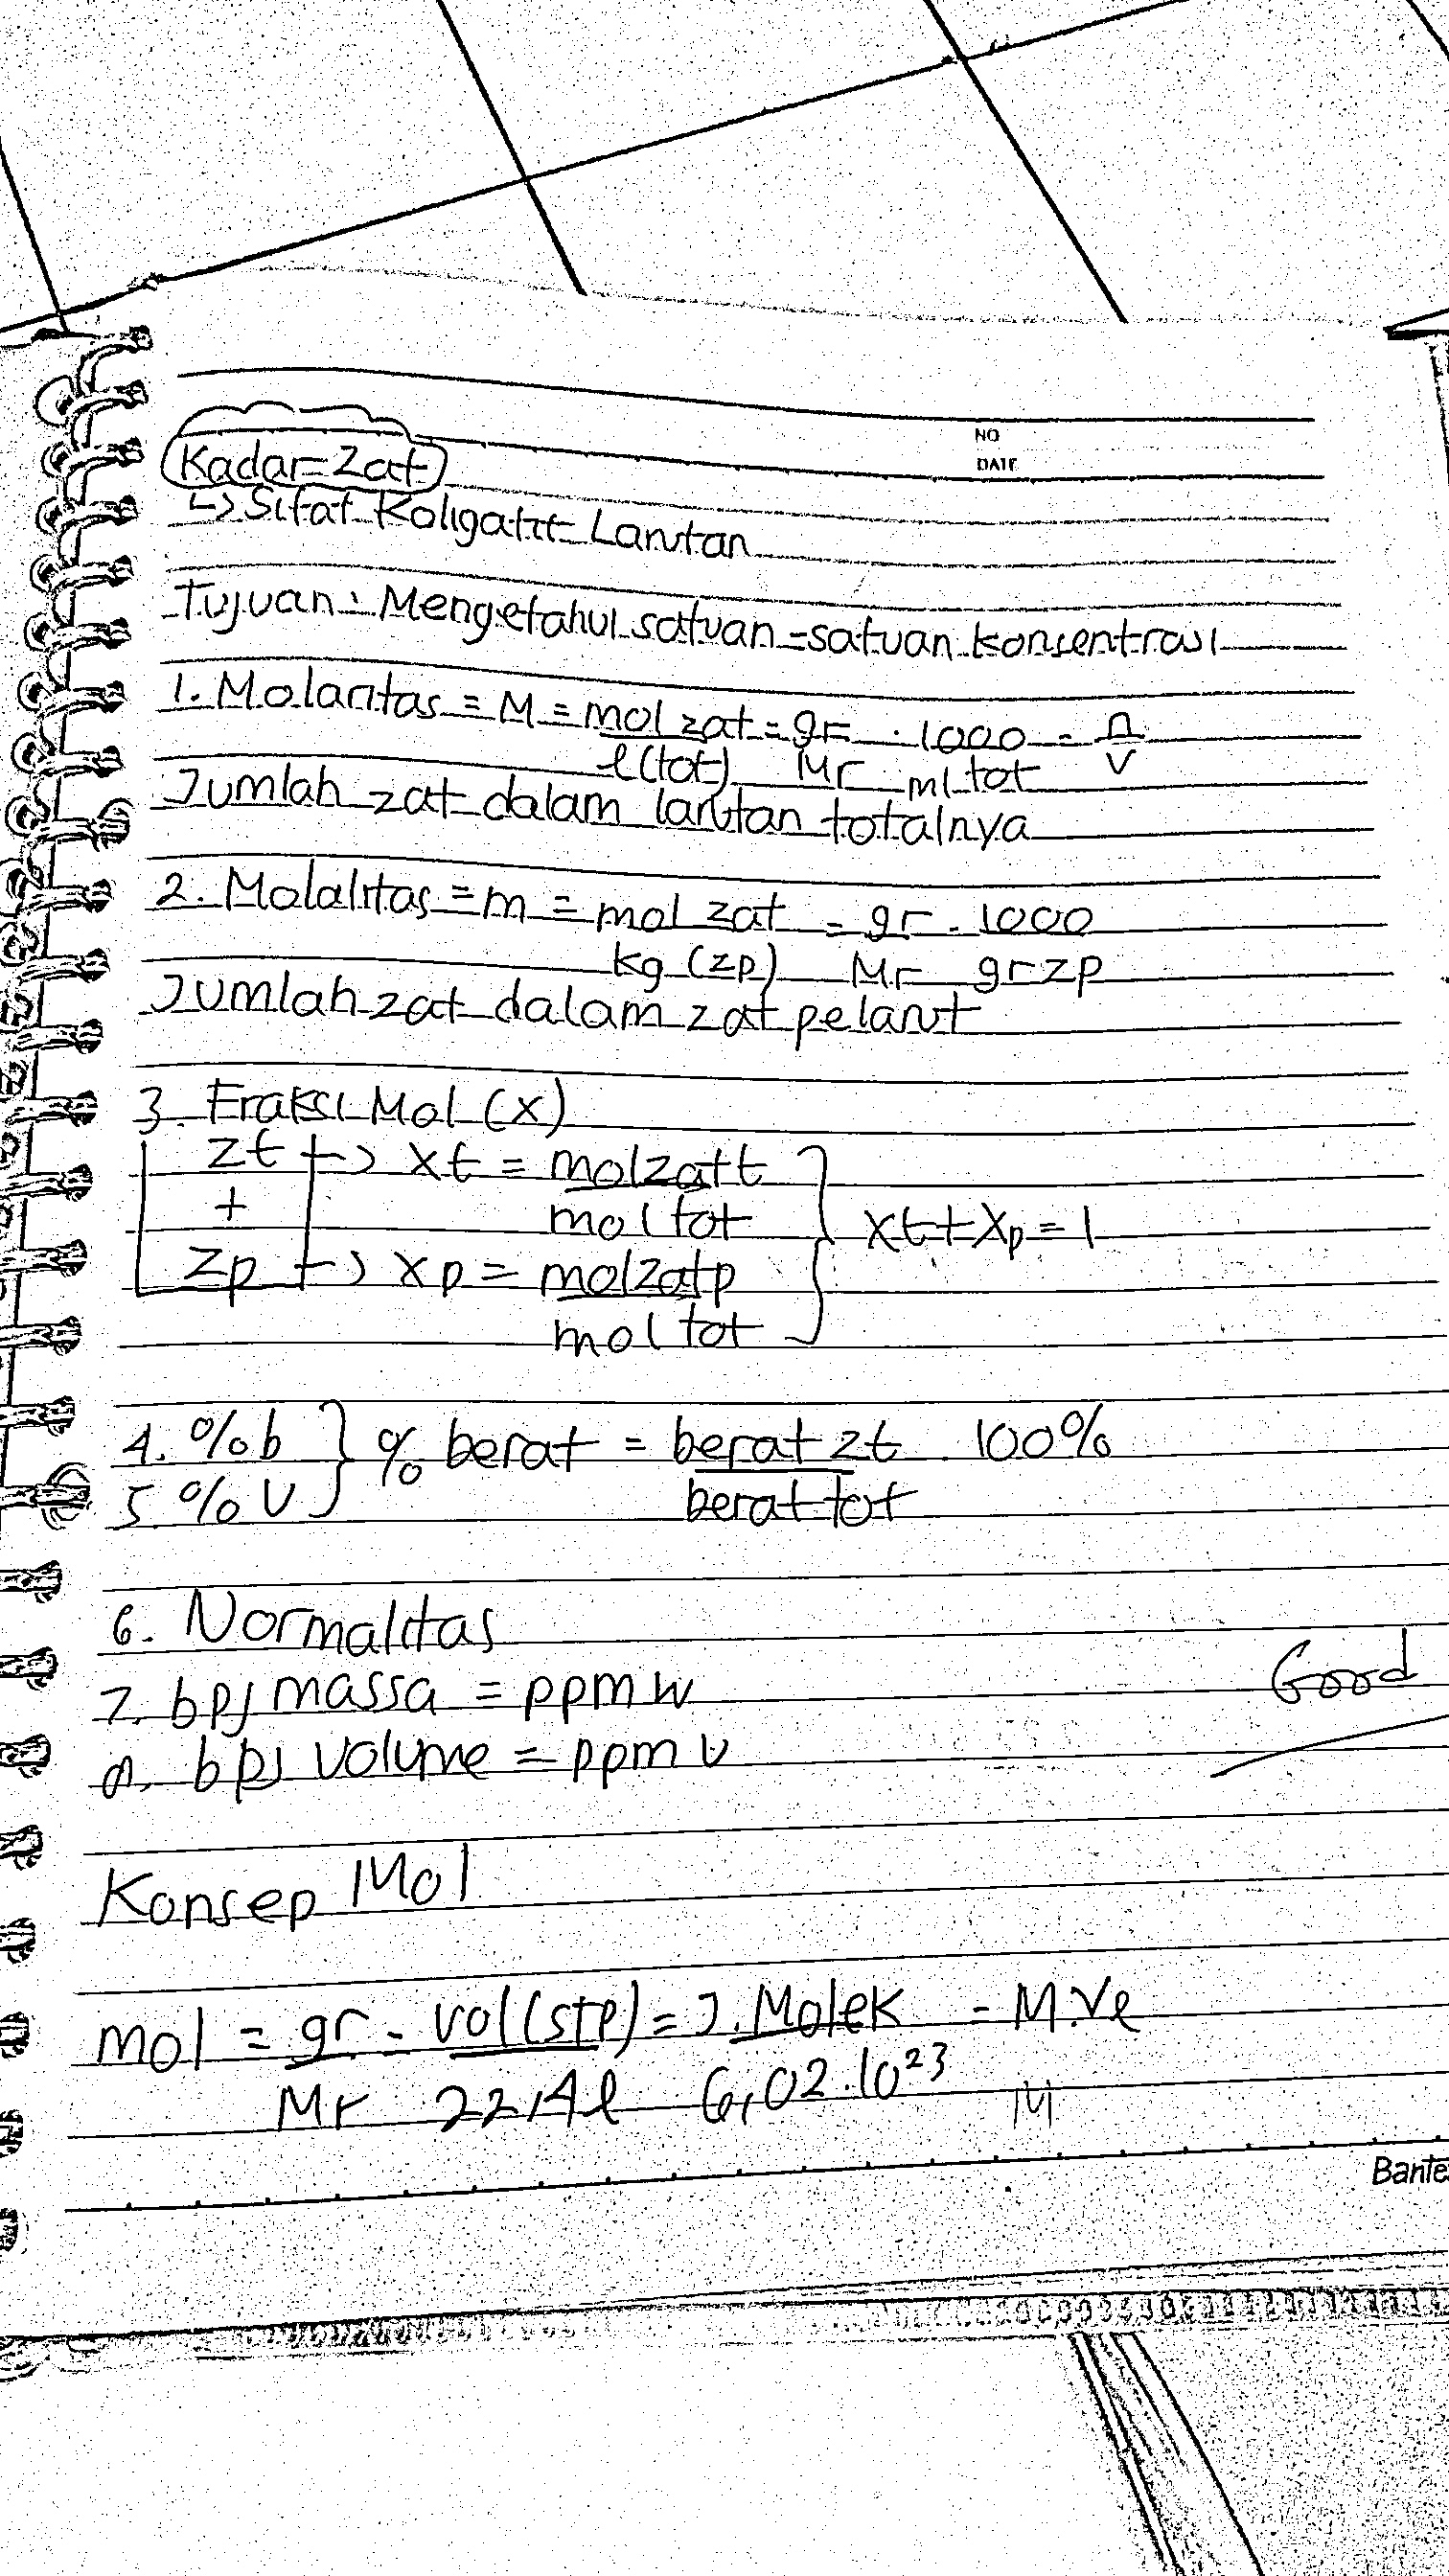 NO
DATE
Kadar Zat
↳ Sifat Koligatif Larutan
Tujuan : Mengetahui satuan-satuan konsentrasi
1. Molaritas = M = mol zat = gr . 1000 = n
l(tot) Mr ml tot v
Jumlah zat dalam larutan totalnya
2. Molalitas = m = mol zat = gr . 1000
kg (zp) Mr gr zp
Jumlah zat dalam zat pelarut
3. Fraksi Mol (x)
zt → xt = mol zat t
+ mol tot
xt + xp = 1
zp → xp = mol zat p
mol tot
4. % b
% berat = berat zt . 100%
5. % v
berat tot
6. Normalitas
7. bpj massa = ppm w
Good
8. bpj volume = ppm v
Konsep Mol
mol = gr = vol (stp) = J. Molek = M.Ve
Mr 22,4 l 6,02.10²³ M
Bante